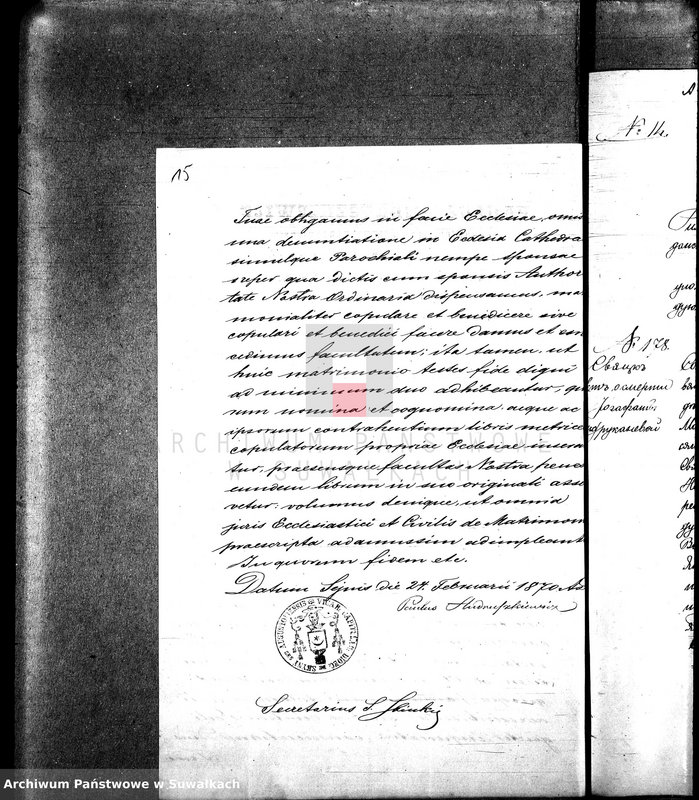 15
Tuae obligamus in facie Ecclesiae, omis
una denuntiatione in Ecclesia Cathedra
simulque Parochiali nempe sponsae
super qua dictis cum sponsis Author
tate Nostra Ordinaria dispensamus, ma
monialiter copulare et benedicere sive
copulari et benedici facere damus et con
cedimus facultatem; ita tamen, ut
huic matrimonio testes fide digni
ad minimum duo adhibeantur, quo
rum nomina et cognomina aeque ac
ipsorum contrahentium libris metrice
copulatorum propriae Ecclesiae insera
tur, praesensque facultas Nostra penes
eundem librum in suo originali asse
vetur, volumus denique, ut omnia
juris Ecclesiastici et Civilis de Matrimon
praescripta adamussim adimpleant
In quorum fidem etc.
Datum Sejnis die 24 Februarii 1870 A
Paulus
Secretarius S.
№ 14.
№ 178.
ARCHIWUM PAŃSTWOWE
W SUWAŁKACH
Archiwum Państwowe w Suwałkach